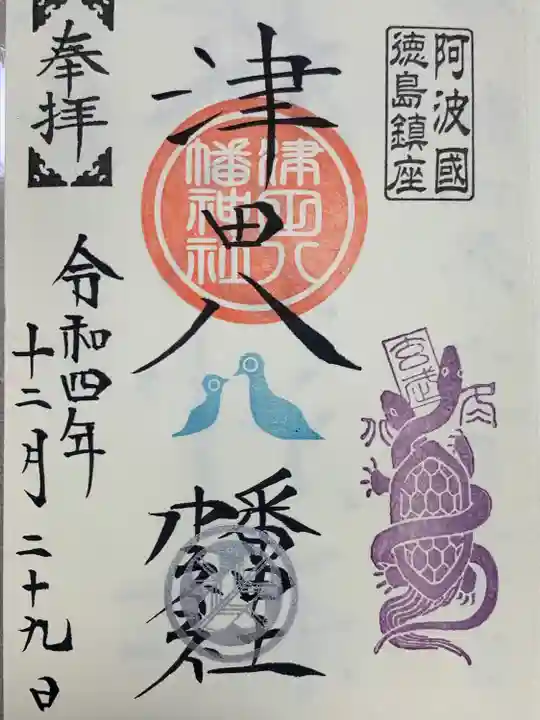 阿波國
徳島鎮座
玄武
津田八幡社
津田八
幡神社
奉拝
令和四年
十二月二十九日